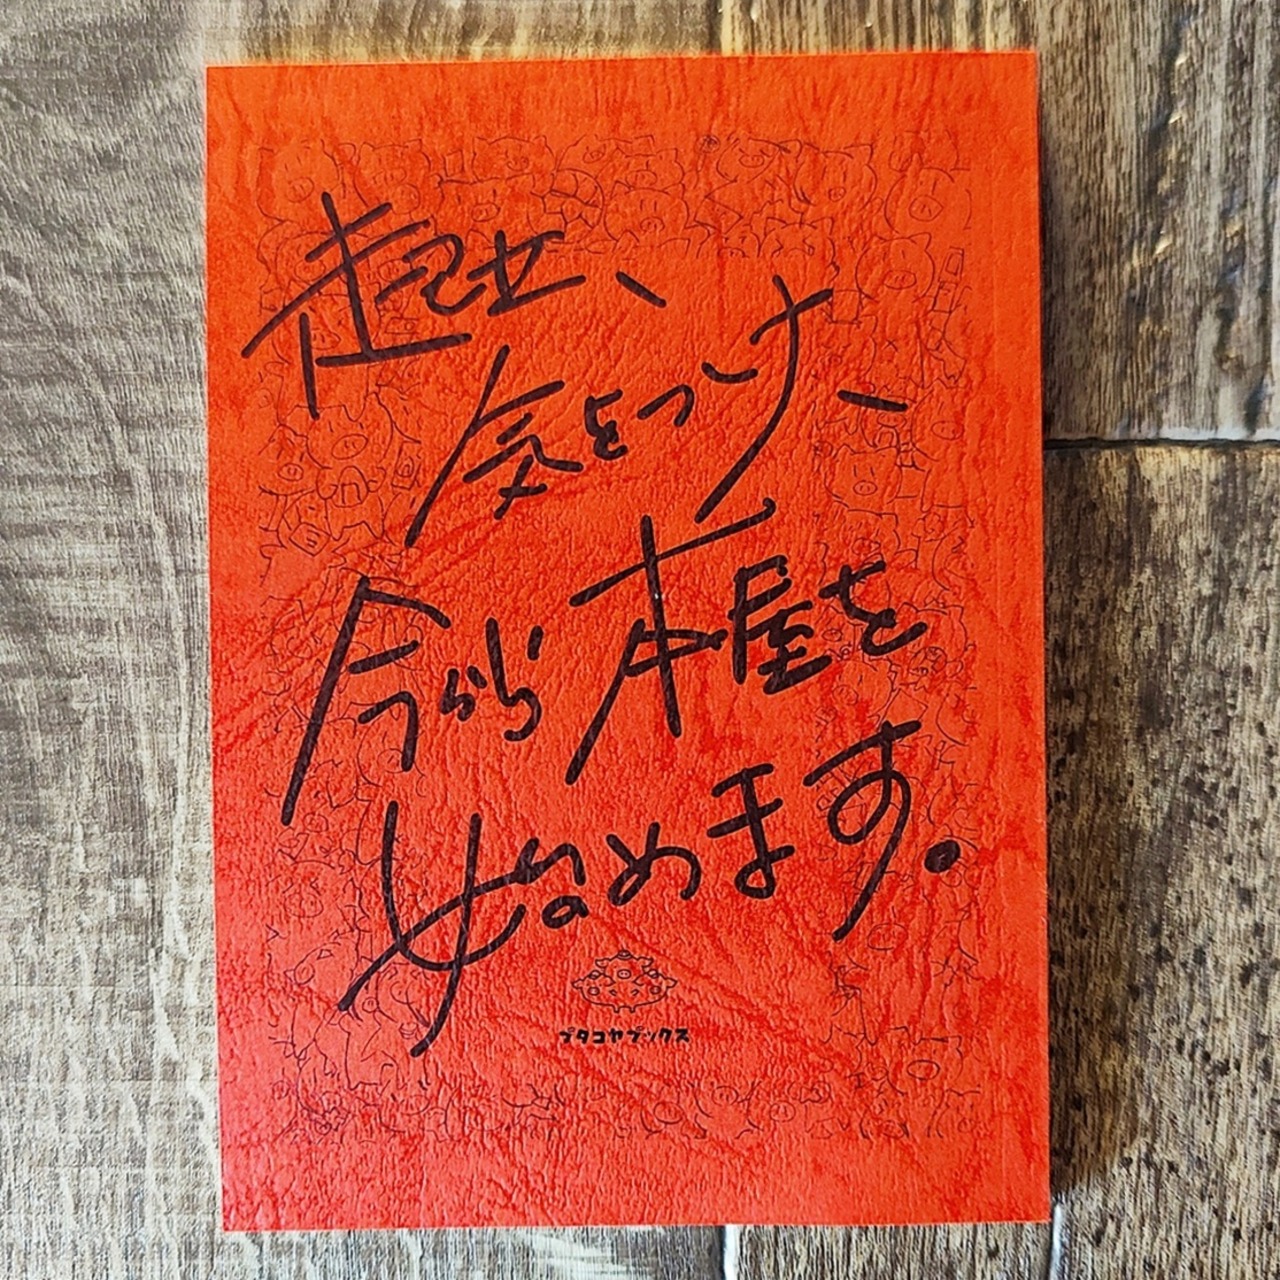 起立、
気をつけ、
今から本屋を
始めます。
ブタコヤブックス